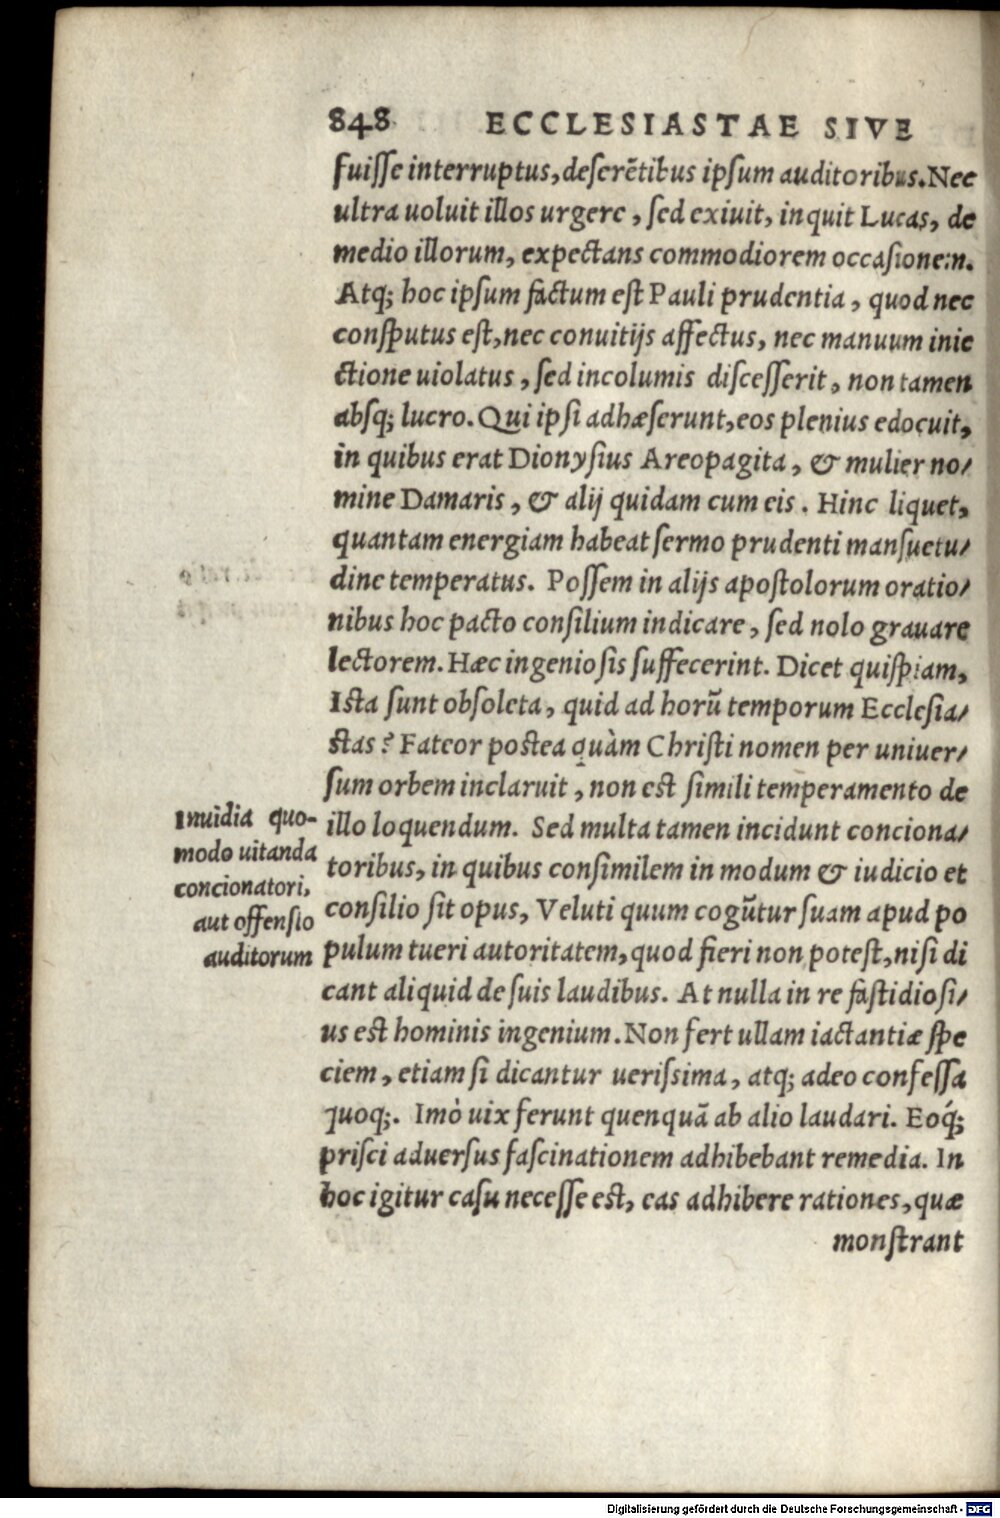 848 ECCLESIASTAE SIVE
fuiſſe interruptus, deſerẽtibus ipſum auditoribus. Nec
ultra uoluit illos urgere, ſed exiuit, inquit Lucas, de
medio illorum, expectans commodiorem occaſionem.
Atq; hoc ipſum factum eſt Pauli prudentia, quod nec
conſputus eſt, nec conuitijs affectus, nec manuum inie
ctione uiolatus, ſed incolumis diſceſſerit, non tamen
abſq; lucro. Qui ipſi adhæſerunt, eos plenius edocuit,
in quibus erat Dionyſius Areopagita, & mulier no/
mine Damaris, & alij quidam cum eis. Hinc liquet,
quantam energiam habeat ſermo prudenti manſuetu/
dine temperatus. Poſſem in alijs apoſtolorum oratio/
nibus hoc pacto conſilium indicare, ſed nolo grauare
lectorem. Hæc ingenioſis ſuffecerint. Dicet quiſpiam,
Iſta ſunt obſoleta, quid ad horũ temporum Eccleſia/
ſtas? Fateor poſtea quàm Chriſti nomen per uniuer/
ſum orbem inclaruit, non eſt ſimili temperamento de
illo loquendum. Sed multa tamen incidunt conciona/
toribus, in quibus conſimilem in modum & iudicio et
conſilio ſit opus, Veluti quum cogũtur ſuam apud po
pulum tueri autoritatem, quod fieri non poteſt, niſi di
cant aliquid de ſuis laudibus. At nulla in re faſtidioſi/
us eſt hominis ingenium. Non fert ullam iactantiæ ſpe
ciem, etiam ſi dicantur ueriſsima, atq; adeo confeſſa
quoq;. Imò uix ferunt quenquã ab alio laudari. Eoq́;
priſci aduerſus faſcinationem adhibebant remedia. In
hoc igitur caſu neceſſe eſt, eas adhibere rationes, quæ
monſtrant
Inuidia quo-
modo uitanda
concionatori,
aut offenſio
auditorum
Digitalisierung gefördert durch die Deutsche Forschungsgemeinschaft - DFG